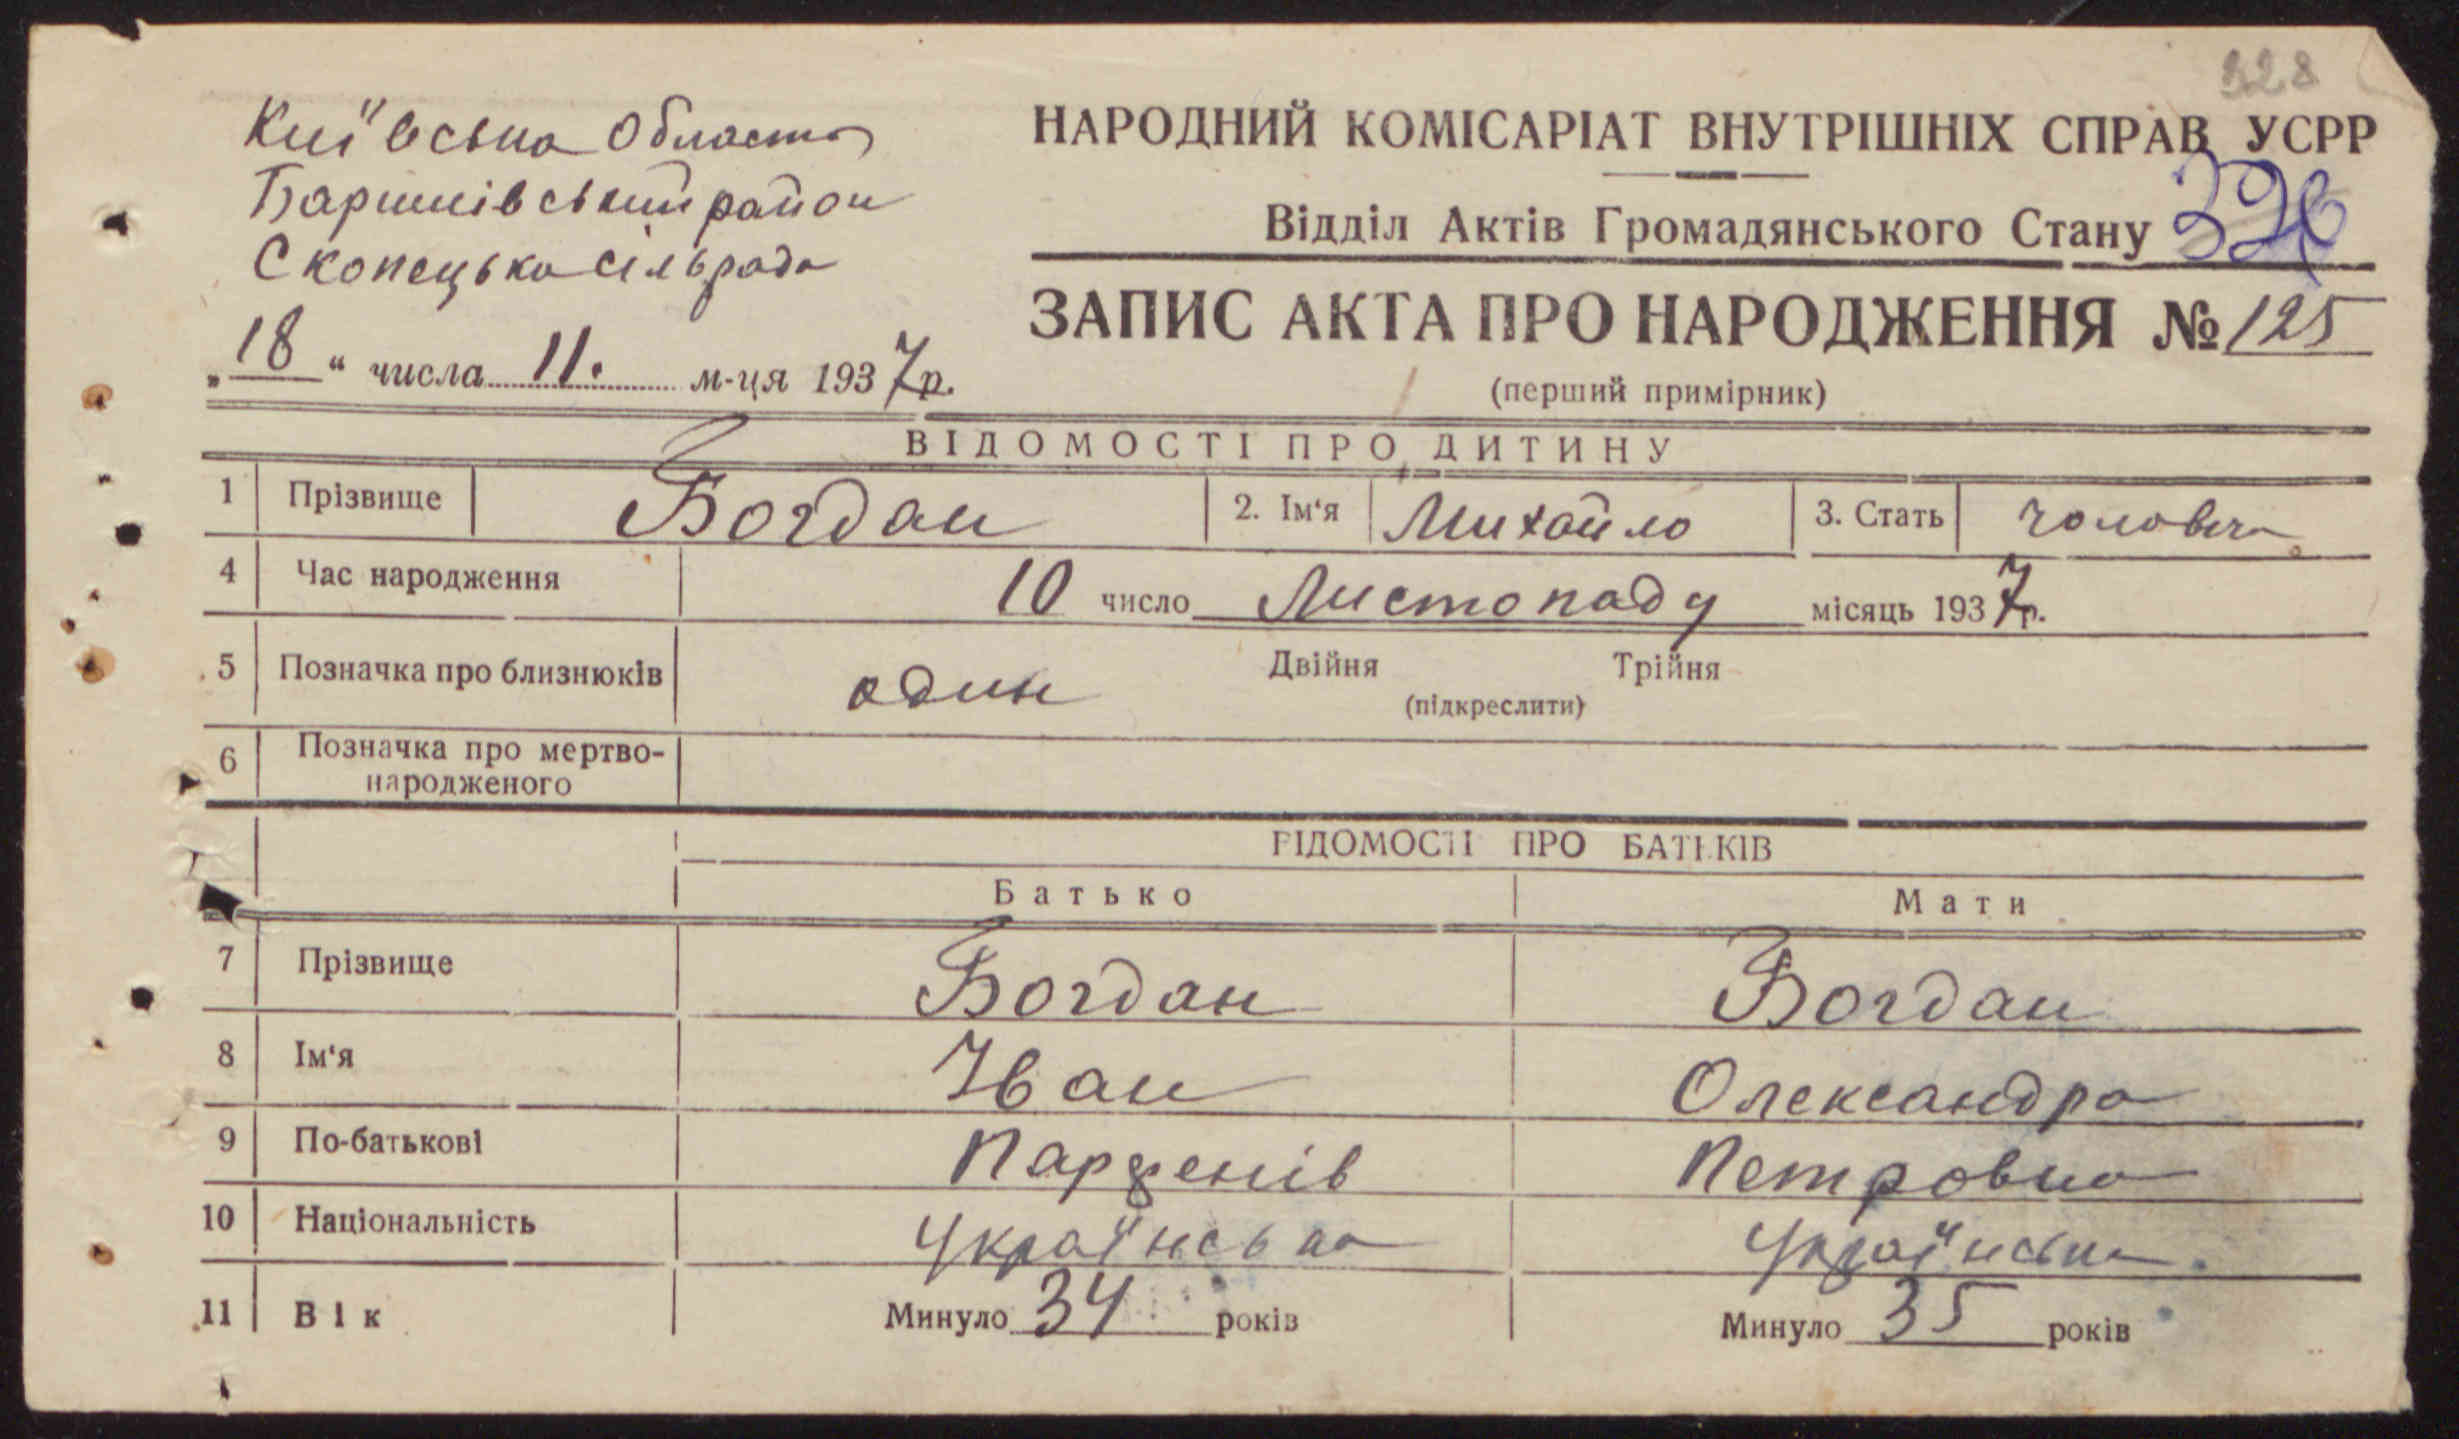 328
Київська Область
Баришівський район
Скопецька сільрада
„18“ числа 11. м-ця 1937р.
НАРОДНИЙ КОМІСАРІАТ ВНУТРІШНІХ СПРАВ УСРР
Відділ Актів Громадянського Стану
ЗАПИС АКТА ПРО НАРОДЖЕННЯ № 125
(перший примірник)
ВІДОМОСТІ ПРО ДИТИНУ
1 Прізвище Богдан 2. Ім‘я Михайло 3. Стать чоловіча
4 Час народження 10 число Листопаду місяць 1937р.
5 Позначка про близнюків один Двійня Трійня
(підкреслити)
6 Позначка про мертво-
народженого
ВІДОМОСТІ ПРО БАТЬКІВ
Батько Мати
7 Прізвище Богдан Богдан
8 Ім‘я Іван Олександра
9 По-батькові Парфенів Петровна
10 Національність Українська Українська
11 Вік Минуло 34 років Минуло 35 років